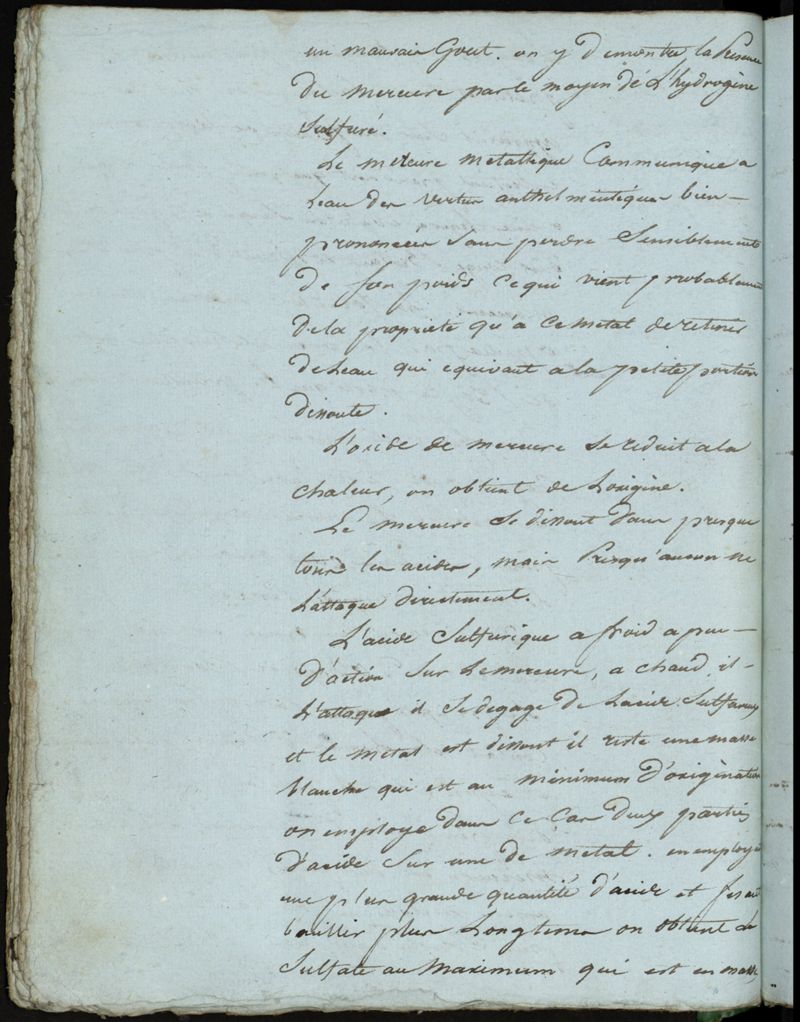 un mauvais Gout. on y demontre la Presence
Du mercure par le moyen de L'hydrogène
Sulfuré.
Le mercure metallique Communique a
Leau des vertus anthelmintiques bien-
prononcées sans perdre Sensiblement
de son poids ce qui vient probablement
de la proprieté qu'a ce metal de retenir
de Leau qui equivaut a la petite portion
dissoute.
L'oxide de mercure se reduit a la
chaleur, on obtient de Loxigène.
Le mercure se dissout dans presque
tous les acides, mais Presqu'aucun ne
L'attaque directement.
L'acide Sulfurique a froid a peu-
D'action sur Le mercure, a chaud, il-
L'attaque il se degage de Lacide Sulfureux
et le metal est dissout il reste une masse
blanche qui est au minimum D'oxigenation
on employe dans ce cas Deux parties
D'acide sur une de metal. en employant
une plus grande quantité d'acide et fesant
bouillir plus Longtems on obtient du
Sulfate au Maximum qui est en masse